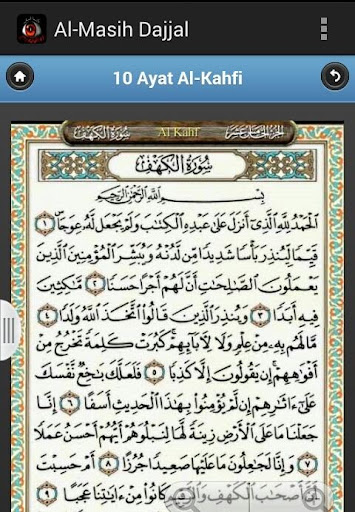 Al-Masih Dajjal
10 Ayat Al-Kahfi
الجزء الخامس عشر Al Kahf سورة الكهف
سُورَةُ الْكَهْفِ
بِسْمِ اللَّهِ الرَّحْمَٰنِ الرَّحِيمِ
الْحَمْدُ لِلَّهِ الَّذِي أَنْزَلَ عَلَىٰ عَبْدِهِ الْكِتَٰبَ وَلَمْ يَجْعَلْ لَهُ عِوَجًا ١
قَيِّمًا لِيُنْذِرَ بَأْسًا شَدِيدًا مِنْ لَدُنْهُ وَيُبَشِّرَ الْمُؤْمِنِينَ الَّذِينَ
يَعْمَلُونَ الصَّٰلِحَٰتِ أَنَّ لَهُمْ أَجْرًا حَسَنًا ٢ مَٰكِثِينَ
فِيهِ أَبَدًا ٣ وَيُنْذِرَ الَّذِينَ قَالُوا اتَّخَذَ اللَّهُ وَلَدًا ٤
مَا لَهُمْ بِهِ مِنْ عِلْمٍ وَلَا لِءَابَائِهِمْ كَبُرَتْ كَلِمَةً تَخْرُجُ مِنْ
أَفْوَٰهِهِمْ إِنْ يَقُولُونَ إِلَّا كَذِبًا ٥ فَلَعَلَّكَ بَٰخِعٌ نَفْسَكَ
عَلَىٰ ءَاثَٰرِهِمْ إِنْ لَمْ يُؤْمِنُوا بِهَٰذَا الْحَدِيثِ أَسَفًا ٦ إِنَّا
جَعَلْنَا مَا عَلَى الْأَرْضِ زِينَةً لَهَا لِنَبْلُوَهُمْ أَيُّهُمْ أَحْسَنُ عَمَلًا
٧ وَإِنَّا لَجَٰعِلُونَ مَا عَلَيْهَا صَعِيدًا جُرُزًا ٨ أَمْ حَسِبْتَ
أَنَّ أَصْحَٰبَ الْكَهْفِ وَالرَّقِيمِ كَانُوا مِنْ ءَايَٰتِنَا عَجَبًا ٩